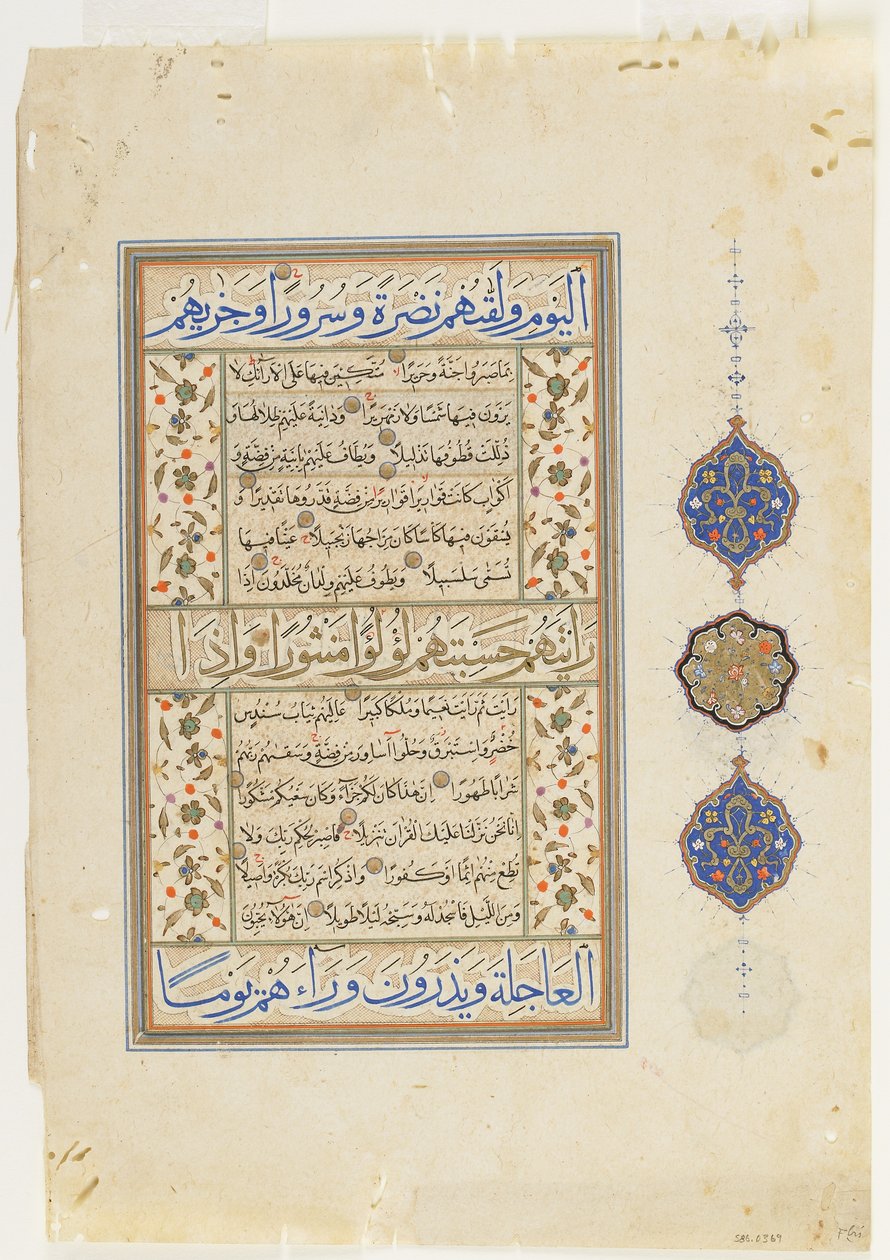 الْيَوْمِ وَلَقّٰهُمْ نَضْرَةً وَسُرُورًا وَجَزٰيهُمْ
بِمَا صَبَرُوا جَنَّةً وَحَرِيرًا مُتَّكِئِينَ فِيهَا عَلَى الْاَرَائِكِ لَا
يَرَوْنَ فِيهَا شَمْسًا وَلَا زَمْهَرِيرًا وَدَانِيَةً عَلَيْهِمْ ظِلَالُهَا وَ
ذُلِّلَتْ قُطُوفُهَا تَذْلِيلًا وَيُطَافُ عَلَيْهِمْ بِاٰنِيَةٍ مِنْ فِضَّةٍ وَ
اَكْوَابٍ كَانَتْ قَوَارِيرَا قَوَارِيرَا مِنْ فِضَّةٍ قَدَّرُوهَا تَقْدِيرًا وَ
يُسْقَوْنَ فِيهَا كَاْسًا كَانَ مِزَاجُهَا زَنْجَبِيلًا عَيْنًا فِيهَا
تُسَمّٰى سَلْسَبِيلًا وَيَطُوفُ عَلَيْهِمْ وِلْدَانٌ مُخَلَّدُونَ اِذَا
رَاَيْتَهُمْ حَسِبْتَهُمْ لُؤْلُؤًا مَنْثُورًا وَاِذَا
رَاَيْتَ ثَمَّ رَاَيْتَ نَعِيمًا وَمُلْكًا كَبِيرًا عَالِيَهُمْ ثِيَابُ سُنْدُسٍ
خُضْرٌ وَاِسْتَبْرَقٌ وَحُلُّوا اَسَاوِرَ مِنْ فِضَّةٍ وَسَقٰىهُمْ رَبُّهُمْ
شَرَابًا طَهُورًا اِنَّ هٰذَا كَانَ لَكُمْ جَزَآءً وَكَانَ سَعْيُكُمْ مَشْكُورًا
اِنَّا نَحْنُ نَزَّلْنَا عَلَيْكَ الْقُرْاٰنَ تَنْزِيلًا فَاصْبِرْ لِحُكْمِ رَبِّكَ وَلَا
تُطِعْ مِنْهُمْ اٰثِمًا اَوْ كَفُورًا وَاذْكُرِ اسْمَ رَبِّكَ بُكْرَةً وَاَصِيلًا
وَمِنَ اللَّيْلِ فَاسْجُدْ لَهُ وَسَبِّحْهُ لَيْلًا طَوِيلًا اِنَّ هٰٓؤُلَآءِ يُحِبُّونَ
الْعَاجِلَةَ وَيَذَرُونَ وَرَاءَهُمْ يَوْمًا
S86.0369